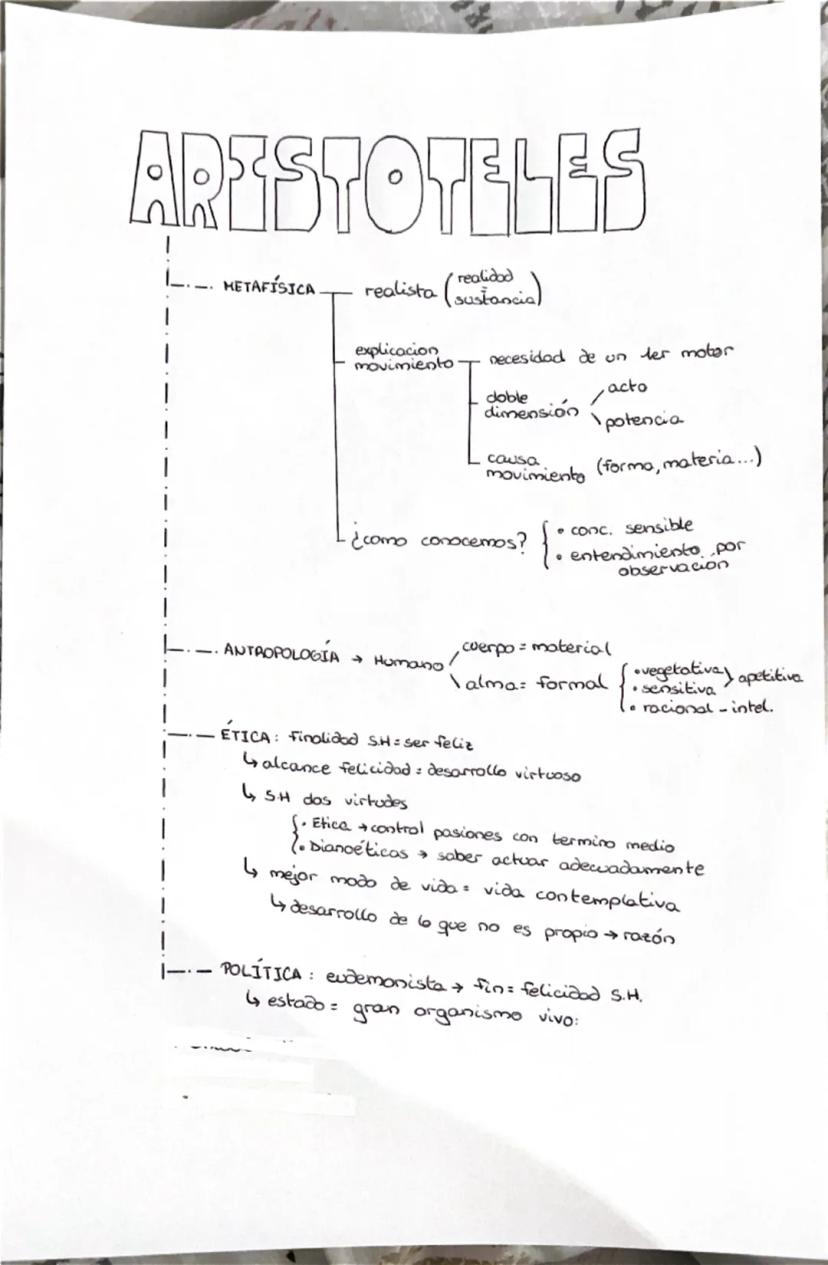 ARISTOTELES
METAFÍSICA
realista (realidad = sustancia)
explicacion movimiento
necesidad de un 1er motor
doble dimensión
acto
potencia
causa movimiento (forma, materia...)
¿como conocemos?
• conc. sensible
• entendimiento por
observacion
ANTROPOLOGÍA → Humano
cuerpo = material
alma = formal
• vegetativa
• sensitiva
apetitiva
• racional - intel.
ÉTICA: finalidad S.H = ser feliz
↳ alcance felicidad = desarrollo virtuoso
↳ S.H dos virtudes
• Etica → control pasiones con termino medio
• Dianoéticas → saber actuar adecuadamente
↳ mejor modo de vida = vida contemplativa
↳ desarrollo de lo que no es propio → razón
POLÍTICA: eudemonista → fin = felicidad S.H.
↳ estado = gran organismo vivo: